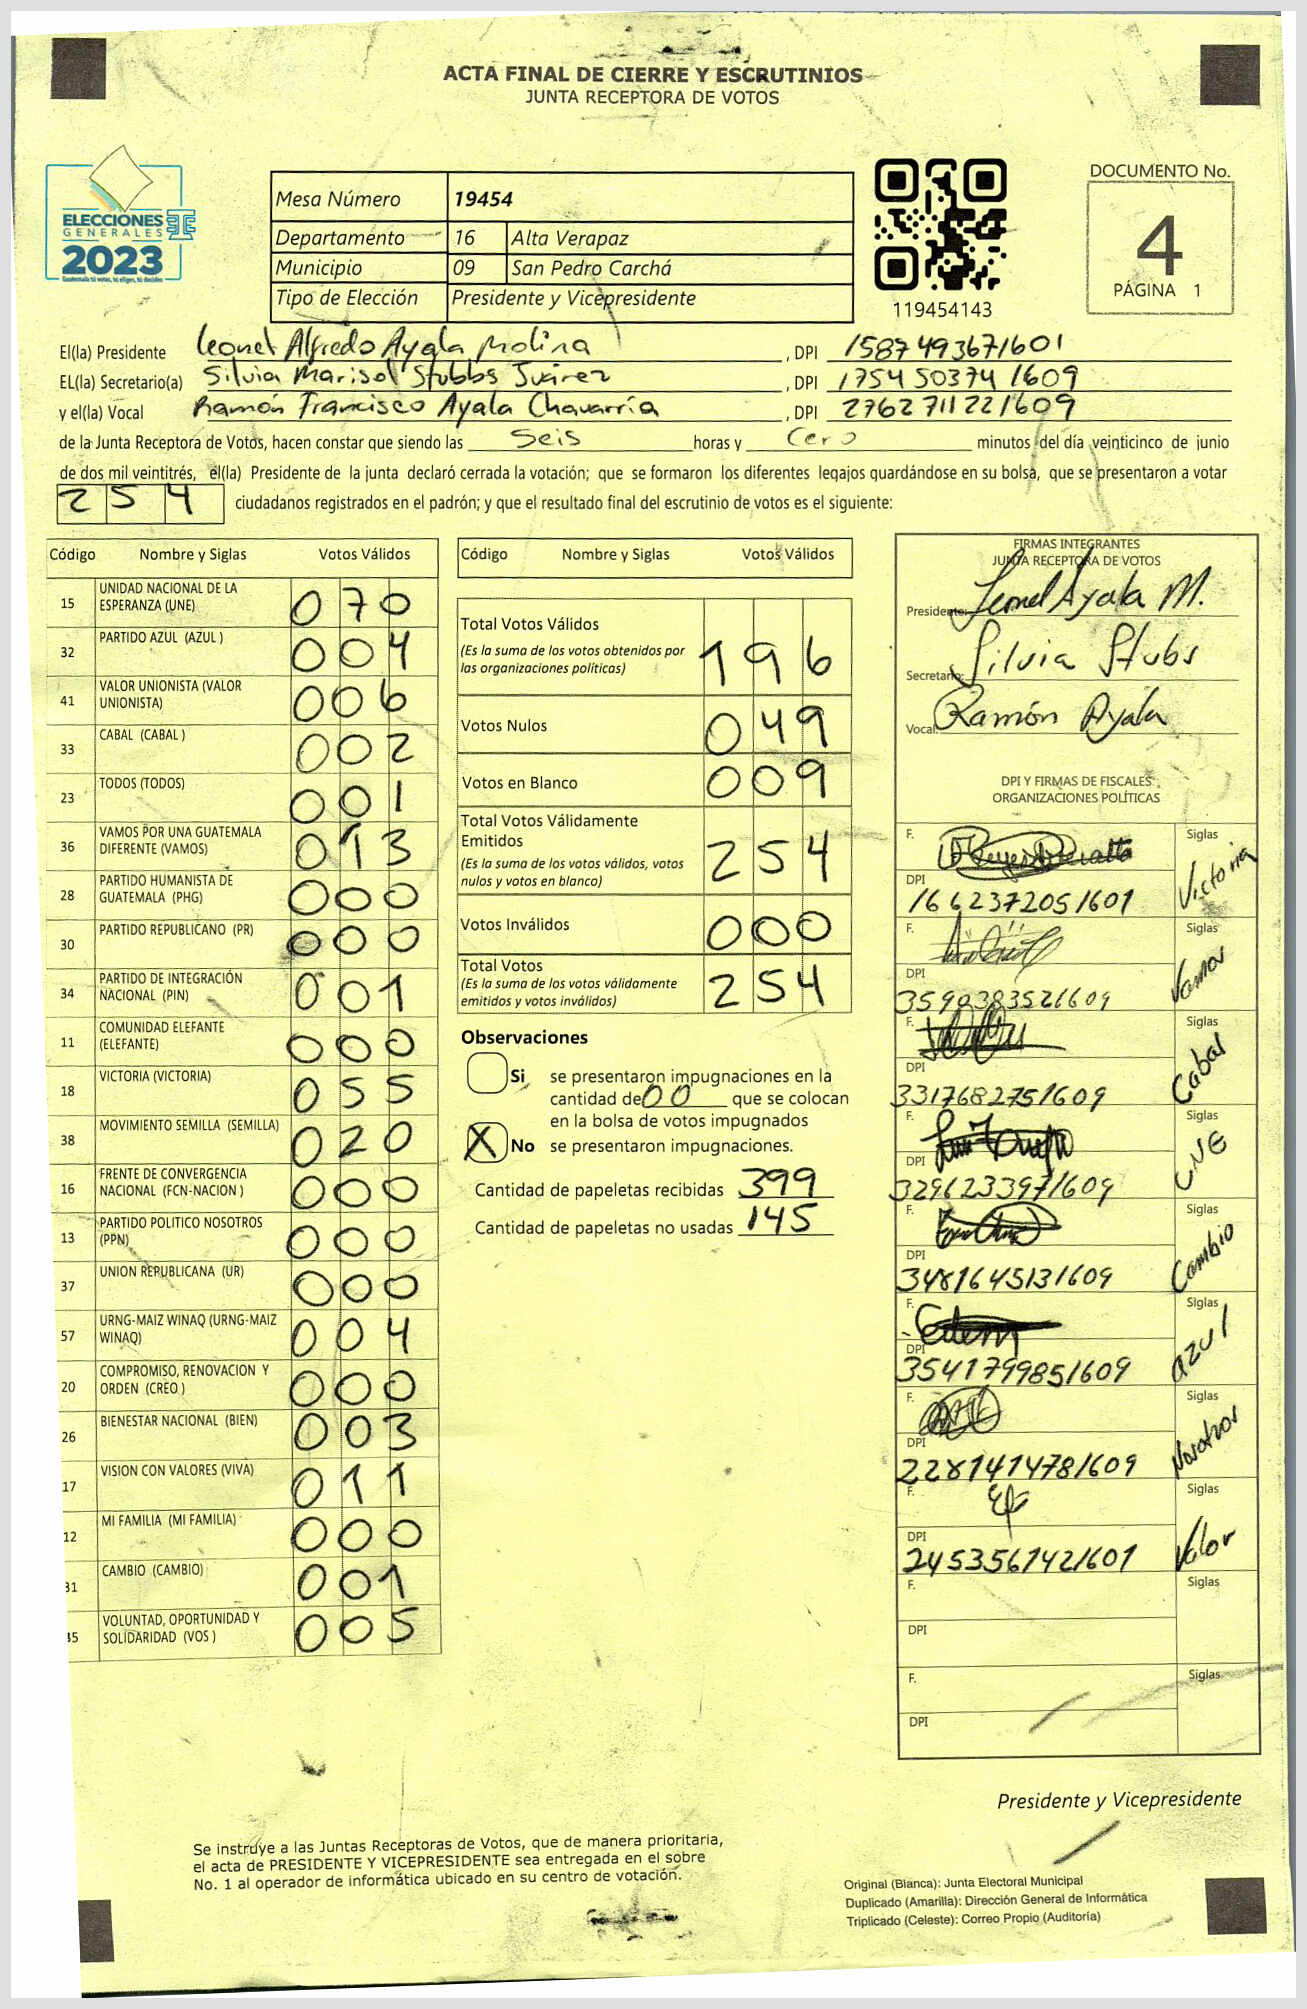 ACTA FINAL DE CIERRE Y ESCRUTINIOS
JUNTA RECEPTORA DE VOTOS
ELECCIONES
GENERALES
2023
Guatemala tú votas, tú eliges, tú decides
Mesa Número 19454
Departamento 16 Alta Verapaz
Municipio 09 San Pedro Carchá
Tipo de Elección Presidente y Vicepresidente
119454143
DOCUMENTO No.
4
PÁGINA 1
El(la) Presidente Leonel Alfredo Ayala Molina, DPI 1587493671601
EL(la) Secretario(a) Silvia Marisol Stubbs Juárez, DPI 1754503741609
y el(la) Vocal Ramón Francisco Ayala Chavarría, DPI 2762711221609
de la Junta Receptora de Votos, hacen constar que siendo las Seis horas y Cero minutos del día veinticinco de junio
de dos mil veintitrés, el(la) Presidente de la junta declaró cerrada la votación; que se formaron los diferentes legajos guardándose en su bolsa, que se presentaron a votar
254 ciudadanos registrados en el padrón; y que el resultado final del escrutinio de votos es el siguiente:
Código Nombre y Siglas Votos Válidos
15 UNIDAD NACIONAL DE LA ESPERANZA (UNE) 070
32 PARTIDO AZUL (AZUL ) 004
41 VALOR UNIONISTA (VALOR UNIONISTA) 006
33 CABAL (CABAL ) 002
23 TODOS (TODOS) 001
36 VAMOS POR UNA GUATEMALA DIFERENTE (VAMOS) 013
28 PARTIDO HUMANISTA DE GUATEMALA (PHG) 000
30 PARTIDO REPUBLICANO (PR) 000
34 PARTIDO DE INTEGRACIÓN NACIONAL (PIN) 001
11 COMUNIDAD ELEFANTE (ELEFANTE) 000
18 VICTORIA (VICTORIA) 055
38 MOVIMIENTO SEMILLA (SEMILLA) 020
16 FRENTE DE CONVERGENCIA NACIONAL (FCN-NACION ) 000
13 PARTIDO POLITICO NOSOTROS (PPN) 000
37 UNION REPUBLICANA (UR) 000
57 URNG-MAIZ WINAQ (URNG-MAIZ WINAQ) 004
20 COMPROMISO, RENOVACION Y ORDEN (CREO ) 000
26 BIENESTAR NACIONAL (BIEN) 003
17 VISION CON VALORES (VIVA) 011
12 MI FAMILIA (MI FAMILIA) 000
31 CAMBIO (CAMBIO) 001
45 VOLUNTAD, OPORTUNIDAD Y SOLIDARIDAD (VOS ) 005
Código Nombre y Siglas Votos Válidos
Total Votos Válidos
(Es la suma de los votos obtenidos por
las organizaciones políticas) 196
Votos Nulos 049
Votos en Blanco 009
Total Votos Válidamente
Emitidos
(Es la suma de los votos válidos, votos
nulos y votos en blanco) 254
Votos Inválidos 000
Total Votos
(Es la suma de los votos válidamente
emitidos y votos inválidos) 254
Observaciones
Si se presentaron impugnaciones en la
cantidad de 00 que se colocan
en la bolsa de votos impugnados
X No se presentaron impugnaciones.
Cantidad de papeletas recibidas 399
Cantidad de papeletas no usadas 145
FIRMAS INTEGRANTES
JUNTA RECEPTORA DE VOTOS
Presidente: Leonel Ayala M.
Secretario: Silvia Stubs
Vocal: Ramón Ayala
DPI Y FIRMAS DE FISCALES
ORGANIZACIONES POLÍTICAS
F. Siglas Victoria
DPI 1662372051601
F. Siglas Vamos
DPI 3590383521609
F. Siglas Cabal
DPI 3317682751609
F. Siglas UNE
DPI 3296233971609
F. Siglas Cambio
DPI 3481645131609
F. Siglas azul
DPI 3541799851609
F. Siglas Nosotros
DPI 2281414781609
F. Siglas Valor
DPI 2453561421601
F. Siglas
DPI
F. Siglas
DPI
Presidente y Vicepresidente
Se instruye a las Juntas Receptoras de Votos, que de manera prioritaria,
el acta de PRESIDENTE Y VICEPRESIDENTE sea entregada en el sobre
No. 1 al operador de informática ubicado en su centro de votación.
Original (Blanca): Junta Electoral Municipal
Duplicado (Amarilla): Dirección General de Informática
Triplicado (Celeste): Correo Propio (Auditoría)